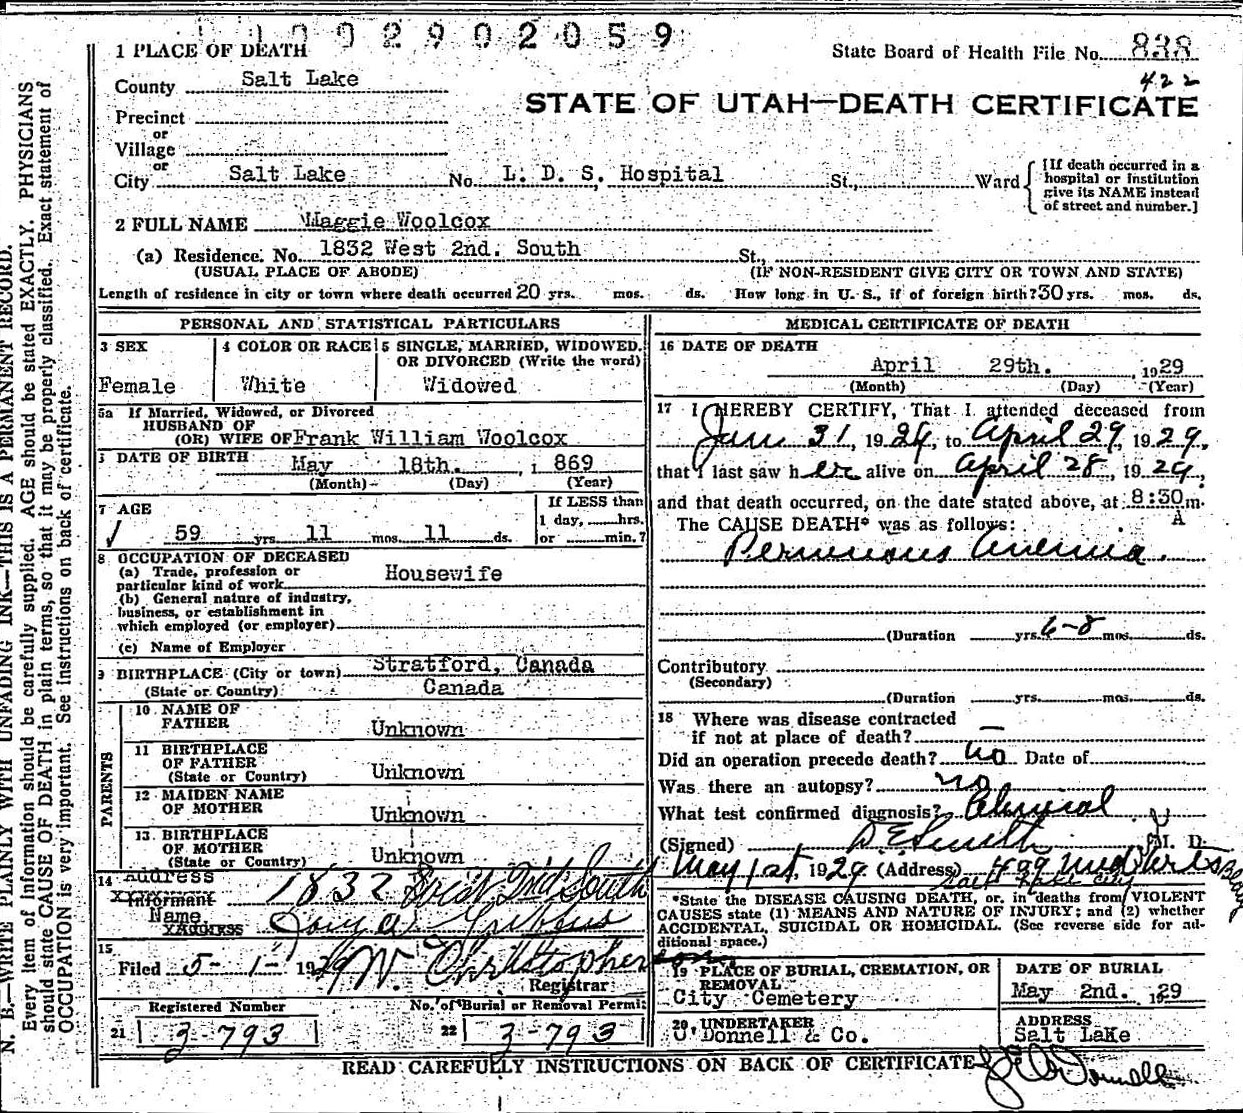 1002902059
1 PLACE OF DEATH
State Board of Health File No. 838
422
County Salt Lake
STATE OF UTAH—DEATH CERTIFICATE
Precinct
or
Village
or
City Salt Lake No. L. D. S. Hospital St., Ward
[If death occurred in a
hospital or institution
give its NAME instead
of street and number.]
2 FULL NAME Maggie Woolcox
(a) Residence. No. 1832 West 2nd. South St.,
(USUAL PLACE OF ABODE) (IF NON-RESIDENT GIVE CITY OR TOWN AND STATE)
Length of residence in city or town where death occurred 20 yrs. mos. ds. How long in U. S., if of foreign birth? 30 yrs. mos. ds.
PERSONAL AND STATISTICAL PARTICULARS
3 SEX
Female
4 COLOR OR RACE
White
5 SINGLE, MARRIED, WIDOWED,
OR DIVORCED (Write the word)
Widowed
5a If Married, Widowed, or Divorced
HUSBAND OF
(OR) WIFE OF Frank William Woolcox
DATE OF BIRTH May 18th. , 1869
(Month) (Day) (Year)
7 AGE
59 yrs. 11 mos. 11 ds.
If LESS than
1 day, hrs.
or min.?
8 OCCUPATION OF DECEASED
(a) Trade, profession or
particular kind of work Housewife
(b) General nature of industry,
business, or establishment in
which employed (or employer)
(c) Name of Employer
9 BIRTHPLACE (City or town) Stratford, Canada
(State or Country) Canada
PARENTS
10 NAME OF
FATHER Unknown
11 BIRTHPLACE
OF FATHER
(State or Country) Unknown
12 MAIDEN NAME
OF MOTHER Unknown
13 BIRTHPLACE
OF MOTHER
(State or Country) Unknown
14 Address
Informant 1832 West 2nd South
Name
Address
15
Filed 5-1-1929 W. Christopherson
Registrar
Registered Number
21 3-793
No. of Burial or Removal Permit
22 3-793
MEDICAL CERTIFICATE OF DEATH
16 DATE OF DEATH
April 29th. , 1929
(Month) (Day) (Year)
17 I HEREBY CERTIFY, That I attended deceased from
Jan 31, 1924, to April 29, 1929,
that I last saw her alive on April 28, 1929,
and that death occurred, on the date stated above, at 8:30 m.
A
The CAUSE DEATH* was as follows:
Pernicious Anemia.
(Duration yrs. 6-8 mos. ds.
Contributory
(Secondary)
(Duration yrs. mos. ds.
18 Where was disease contracted
if not at place of death? —
Did an operation precede death? no Date of
Was there an autopsy? no
What test confirmed diagnosis? Clinical
(Signed) D E Smith M. D.
May 1st, 1929 (Address) 499 Med Arts Bldg
Salt Lake City
*State the DISEASE CAUSING DEATH, or, in deaths from VIOLENT
CAUSES state (1) MEANS AND NATURE OF INJURY; and (2) whether
ACCIDENTAL, SUICIDAL OR HOMICIDAL. (See reverse side for ad-
ditional space.)
19 PLACE OF BURIAL, CREMATION, OR
REMOVAL
City Cemetery
DATE OF BURIAL
May 2nd. 1929
20. UNDERTAKER
O'Donnell & Co.
ADDRESS
Salt Lake
READ CAREFULLY INSTRUCTIONS ON BACK OF CERTIFICATE
N. B.—WRITE PLAINLY WITH UNFADING INK—THIS IS A PERMANENT RECORD.
Every item of information should be carefully supplied. AGE should be stated EXACTLY. PHYSICIANS
should state CAUSE OF DEATH in plain terms, so that it may be properly classified. Exact statement of
OCCUPATION is very important. See instructions on back of certificate.